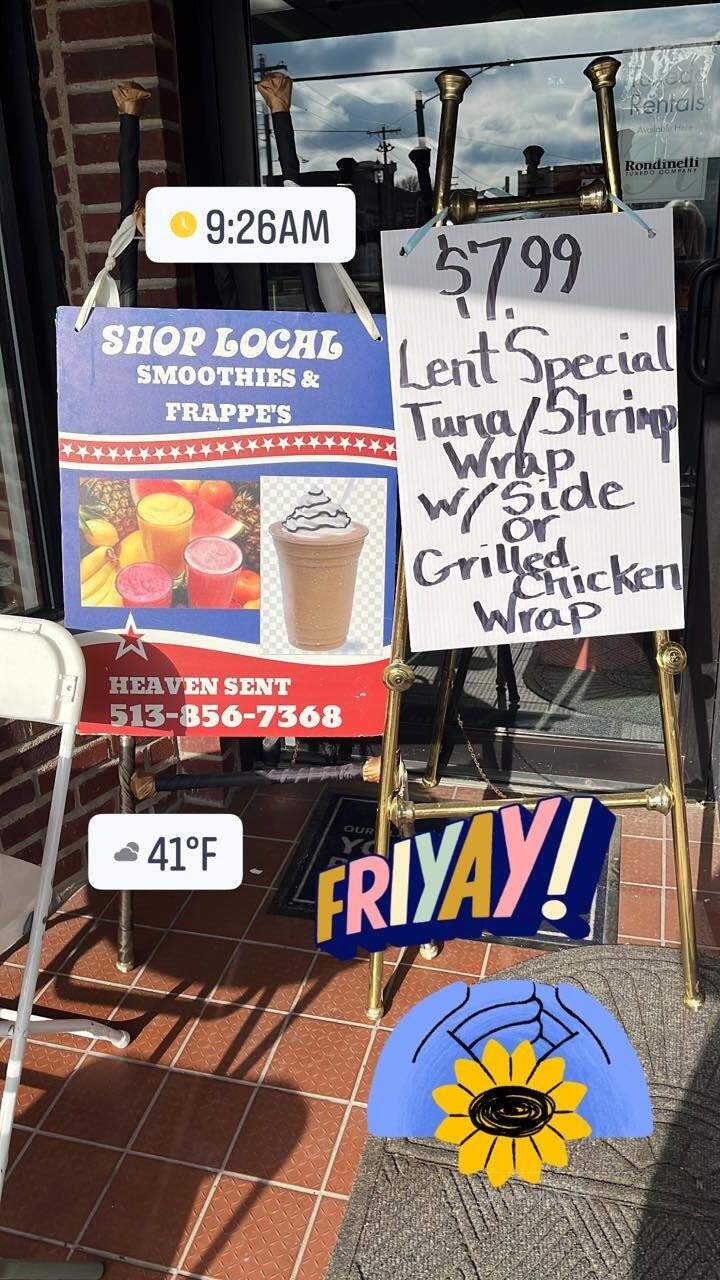 Tuxedo
Rentals
Available Here
Rondinelli
TUXEDO COMPANY
9:26AM
$7.99
Lent Special
Tuna/Shrimp
Wrap
w/Side
or
Grilled
Chicken
Wrap
SHOP LOCAL
SMOOTHIES &
FRAPPE'S
HEAVEN SENT
513-856-7368
41°F
FRIYAY!
OUR